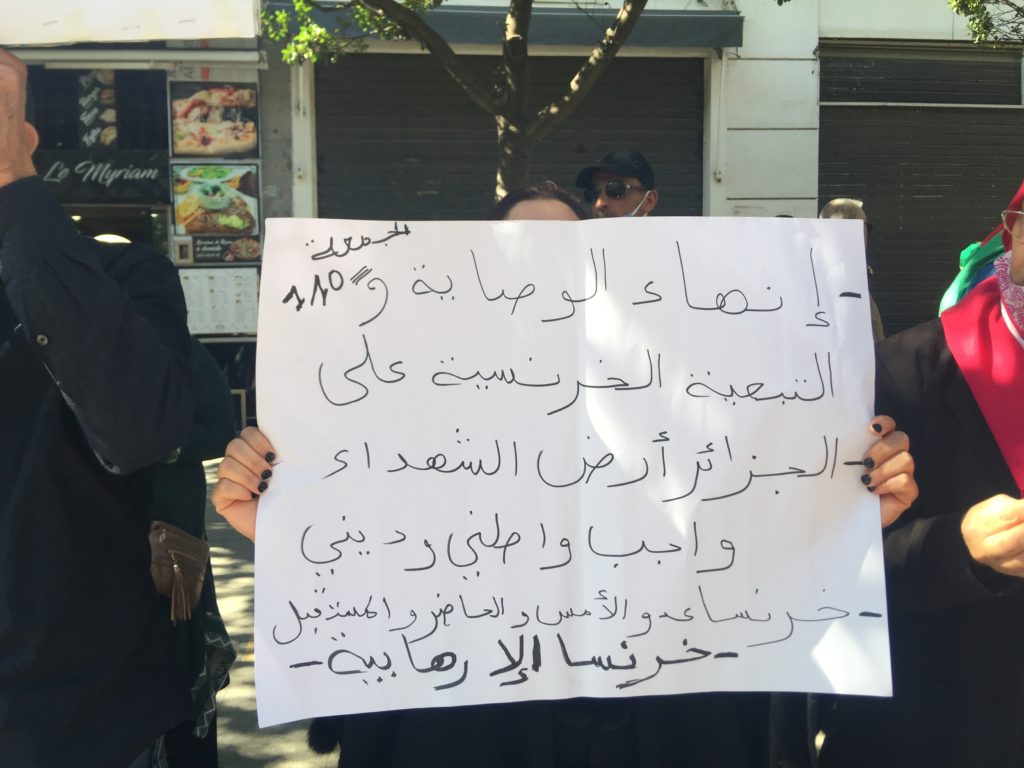 Le Myriam
الجمعة
110
- إنهاء الوصاية و
التبعية الخرنسية على
- الجزائر أرض الشهداء
واجب واطني وديني
- خرنسا عدو الأمس والحاضر والمستقبل
- خرنسا الإرهابية -